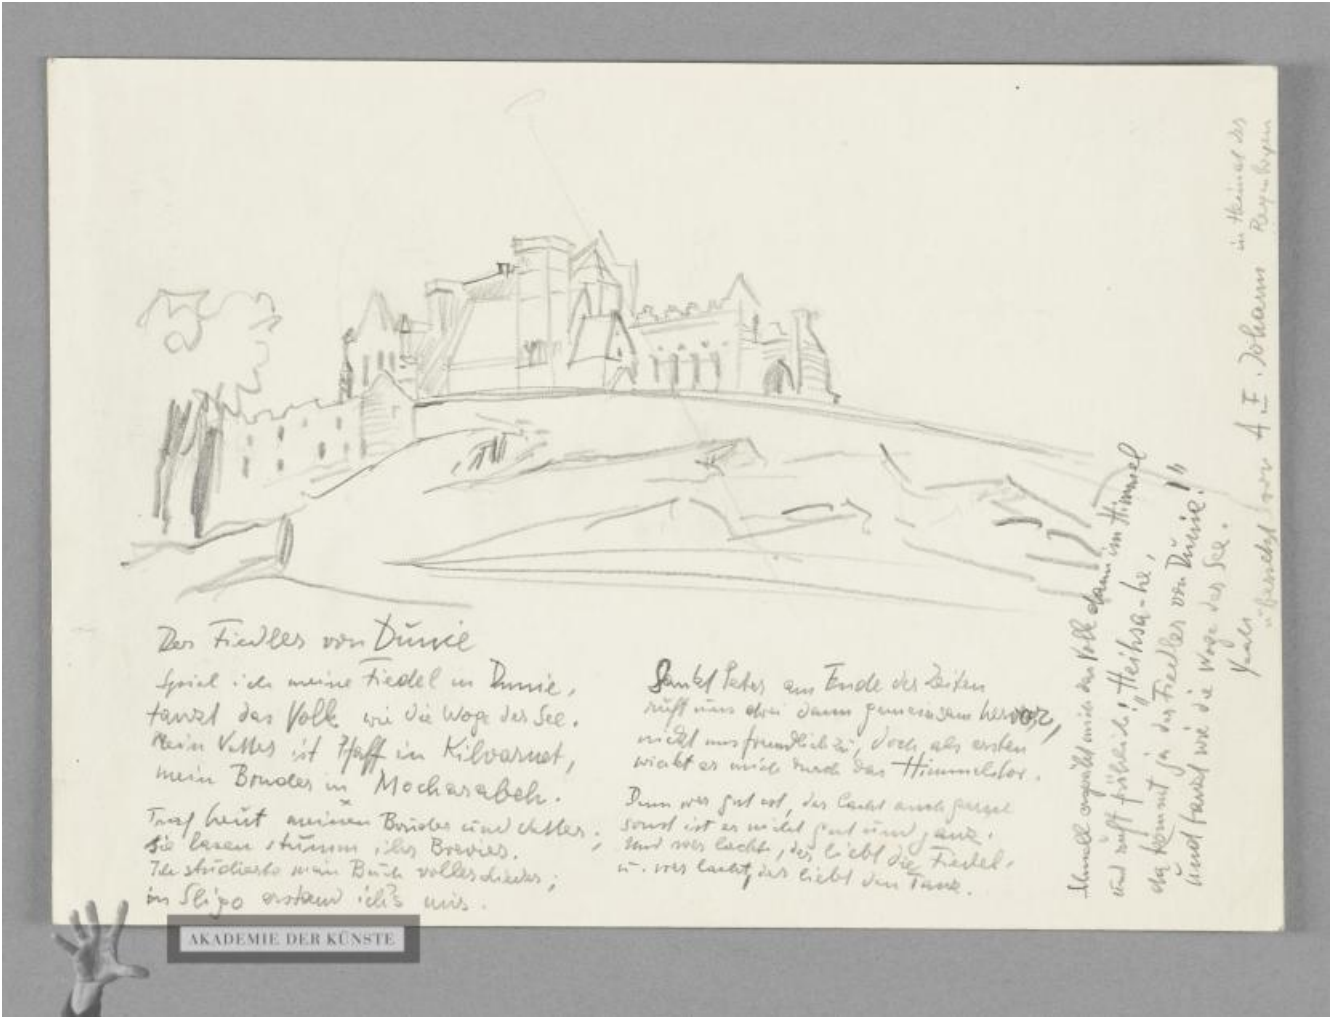 Der Fiedler von Dunie
Spiel ich meine Fiedel in Dunie,
tanzt das Volk wie die Woge der See.
Mein Vetter ist Pfaff in Kilvarnet,
mein Bruder in Mocharabeh.
Traf heut meinen Bruder und Vetter;
Sie lasen stumm ihr Brevier.
Ich studierte mein Buch voller Lieder;
in Sligo erstand ich's mir.
Sankt Peter am Ende der Zeiten
ruft uns drei dann gemeinsam hervor,
nickt uns freundlich zu, doch als ersten
winkt er mich durch das Himmelstor.
Denn wer gut ist, der lacht auch gerne
sonst ist er nicht gut und ganz.
Und wer lacht, der liebt die Fiedel.
u. wer lacht, der liebt den Tanz.
Schnell umgibt mich das Volk dann im Himmel
und ruft fröhlich: "Heihsa-he,
da kommt ja der Fiedler von Dunie!"
Und tanzt wie die Woge der See.
Yeats
übersetzt von A. E. Johann
in Heimat der
Regenbogen
AKADEMIE DER KÜNSTE